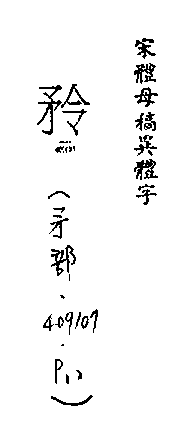 宋體母稿異體字
矜
(矛部.409107.P11)